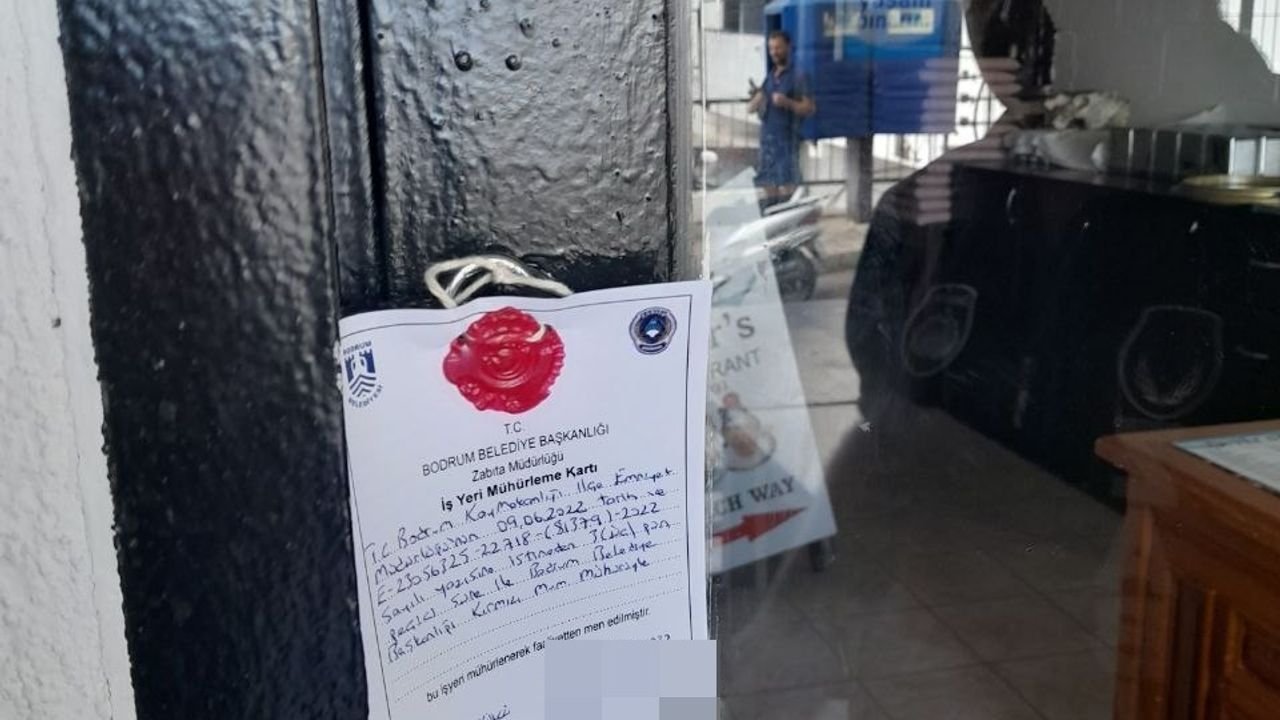 BODRUM
BELEDİYESİ
T.C.
BODRUM BELEDİYE BAŞKANLIĞI
Zabıta Müdürlüğü
İş Yeri Mühürleme Kartı
T.C. Bodrum Kaymakamlığı İlçe Emniyet
Müdürlüğünün 09.06.2022 tarih ve
E-23056325-22718-(81379)-2022
Sayılı yazısına istineden 3(üç) gün
geçici süre ile Bodrum Belediye
Başkanlığı Kırmızı Mum Mühürüyle
bu işyeri mühürlenerek faaliyetten men edilmiştir.
r's
RANT
CH WAY